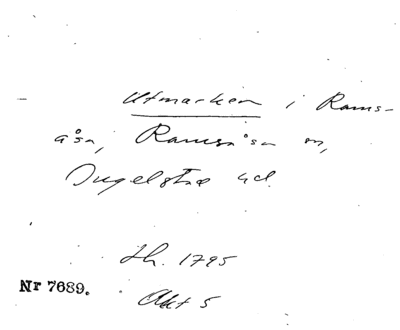 Utmarken i Rams-
åsa, Ramsåsa sn,
Ingelstad hd.
Sk. 1795
Nr 7689.
Akt 5